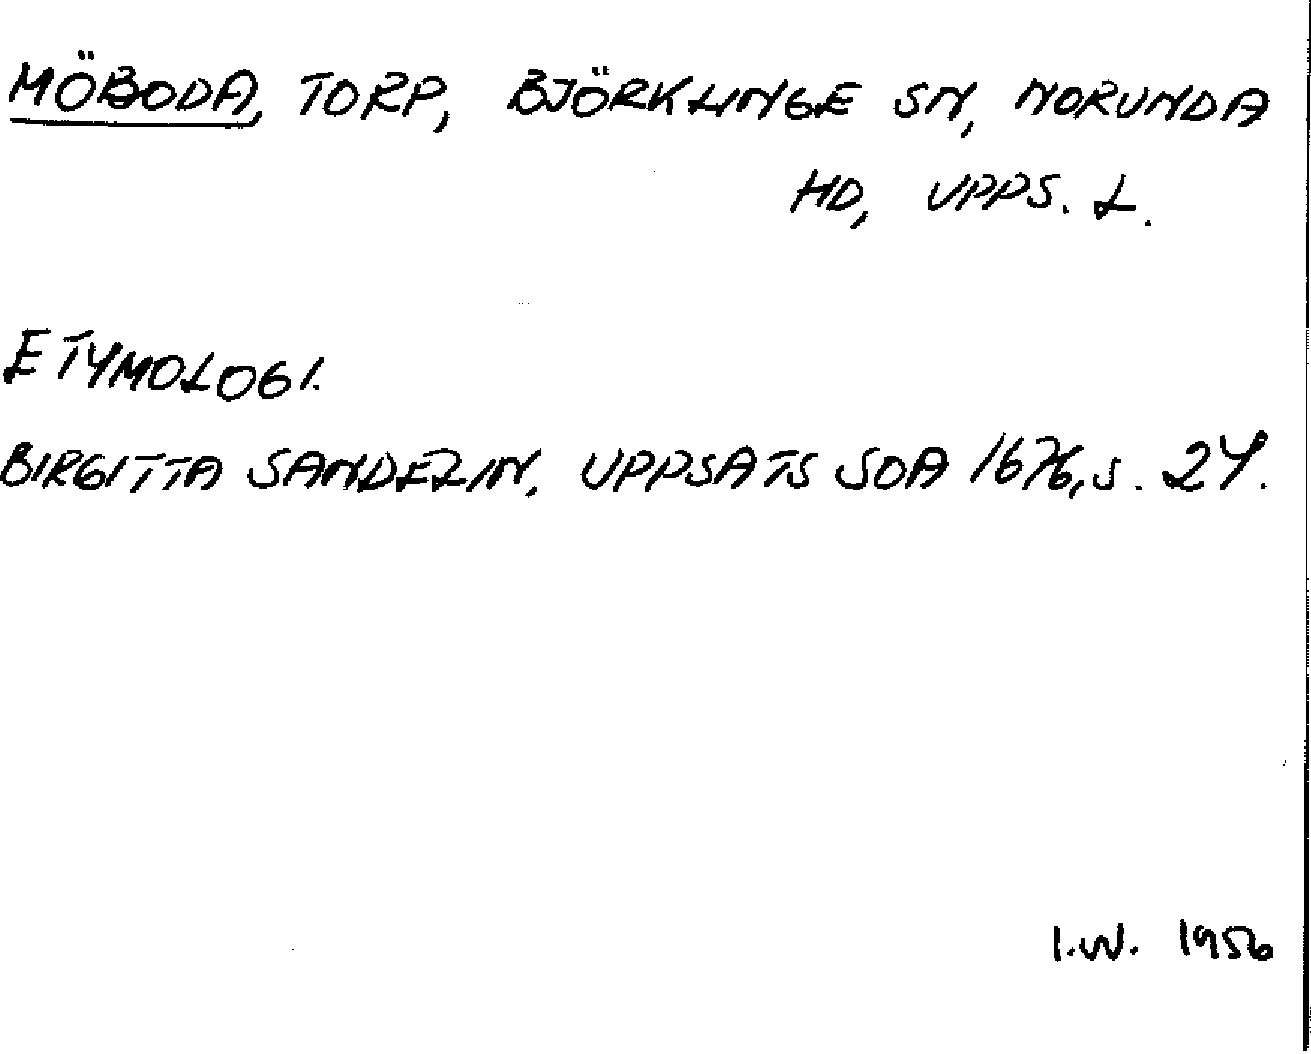 MÖBODA, TORP, BJÖRKLINGE SN, NORUNDA
HD, UPPS. L.
ETYMOLOGI.
BIRGITTA SANDELIN, UPPSATS SOA 1676, S. 24.
I.W. 1956